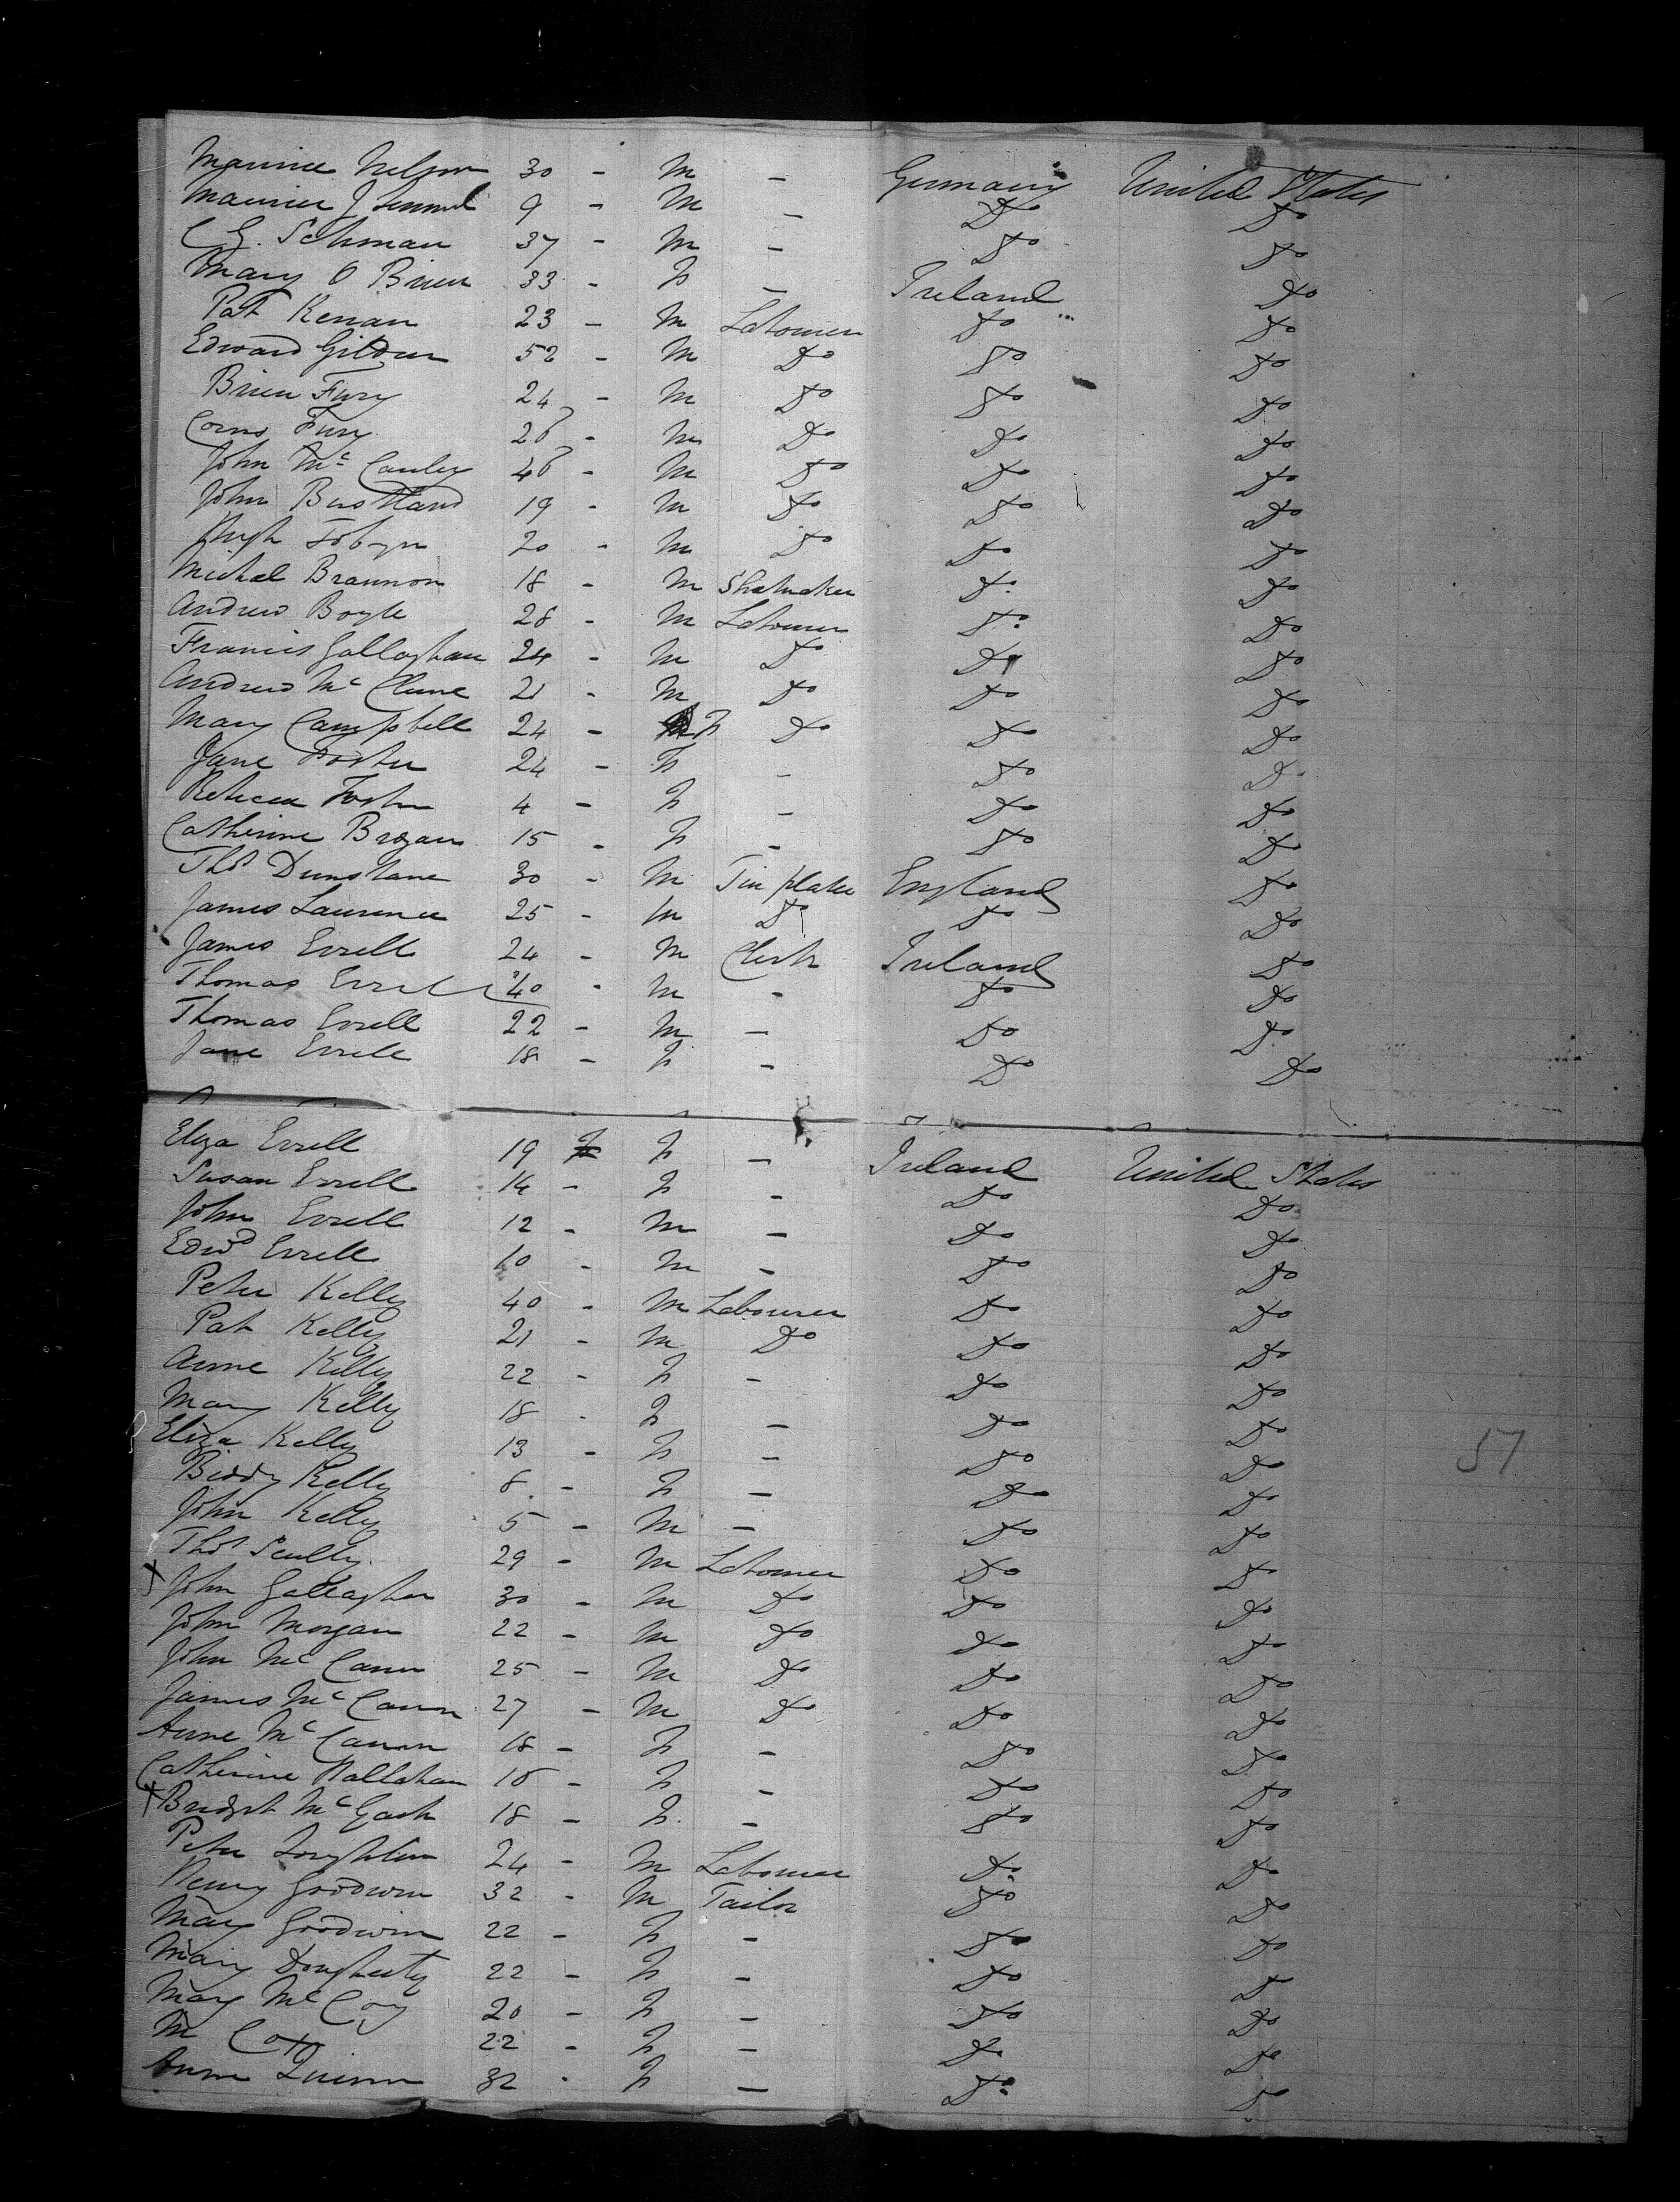 Maurice Nelson 30 - M - Germany United States
Maurice J 9 - M - Do Do
C G. Schman 37 - M - Do Do
Mary O Brien 33 - F - Ireland Do
Pat Kenan 23 - M Labourer Do Do
Edward Gilder 52 - M Do Do Do
Brien Fury 24 - M Do Do Do
Corns Fury 26 - M Do Do Do
John Mc Cauley 46 - M Do Do Do
John Bustland 19 - M Do Do Do
Hugh Tobyn 20 - M Do Do Do
Michael Brannon 18 - M Shoemaker Do Do
Andrew Boyle 28 - M Labourer Do Do
Francis Gallaghan 24 - M Do Do Do
Andrew Mc Clune 21 - M Do Do Do
Mary Campbell 24 - F Do Do Do
Jane Foster 24 - F - Do Do
Rebecca Foster 4 - F - Do Do
Catherine Brogan 15 - F - Do Do
Thos Dunstane 30 - M Tin plate England Do
James Laurence 25 - M Do Do Do
James Errell 24 - M Clerk Ireland Do
Thomas Errell 40 - M - Do Do
Thomas Errell 22 - M - Do Do
Jane Errell 18 - F - Do Do
Eliza Errell 19 F - Ireland United States
Susan Errell 14 - F - Do Do
John Errell 12 - M - Do Do
Edwd Errell 10 - M - Do Do
Peter Kelly 40 - M Labourer Do Do
Pat Kelly 21 - M Do Do Do
Anne Kelly 22 - F - Do Do
Mary Kelly 18 - F - Do Do
Eliza Kelly 13 - F - Do Do
Biddy Kelly 8 - F - Do Do
John Kelly 5 - M - Do Do
Thos Scully 29 - M Labourer Do Do
x John Gallagher 30 - M Do Do Do
John Morgan 22 - M Do Do Do
John Mc Cann 25 - M Do Do Do
James Mc Cann 27 - M Do Do Do
Anne Mc Cann 18 - F - Do Do
Catherine Hallahan 18 - F - Do Do
x Bridget Mc Gark 18 - F - Do Do
Peter Loughlin 24 - M Labourer Do Do
Henry Goodwin 32 - M Tailor Do Do
Mary Goodwin 22 - F - Do Do
Mary Dougherty 22 - F - Do Do
Mary Mc Coy 20 - F - Do Do
M Cox 22 - F - Do Do
Anne Quinn 32 - F - Do Do
57